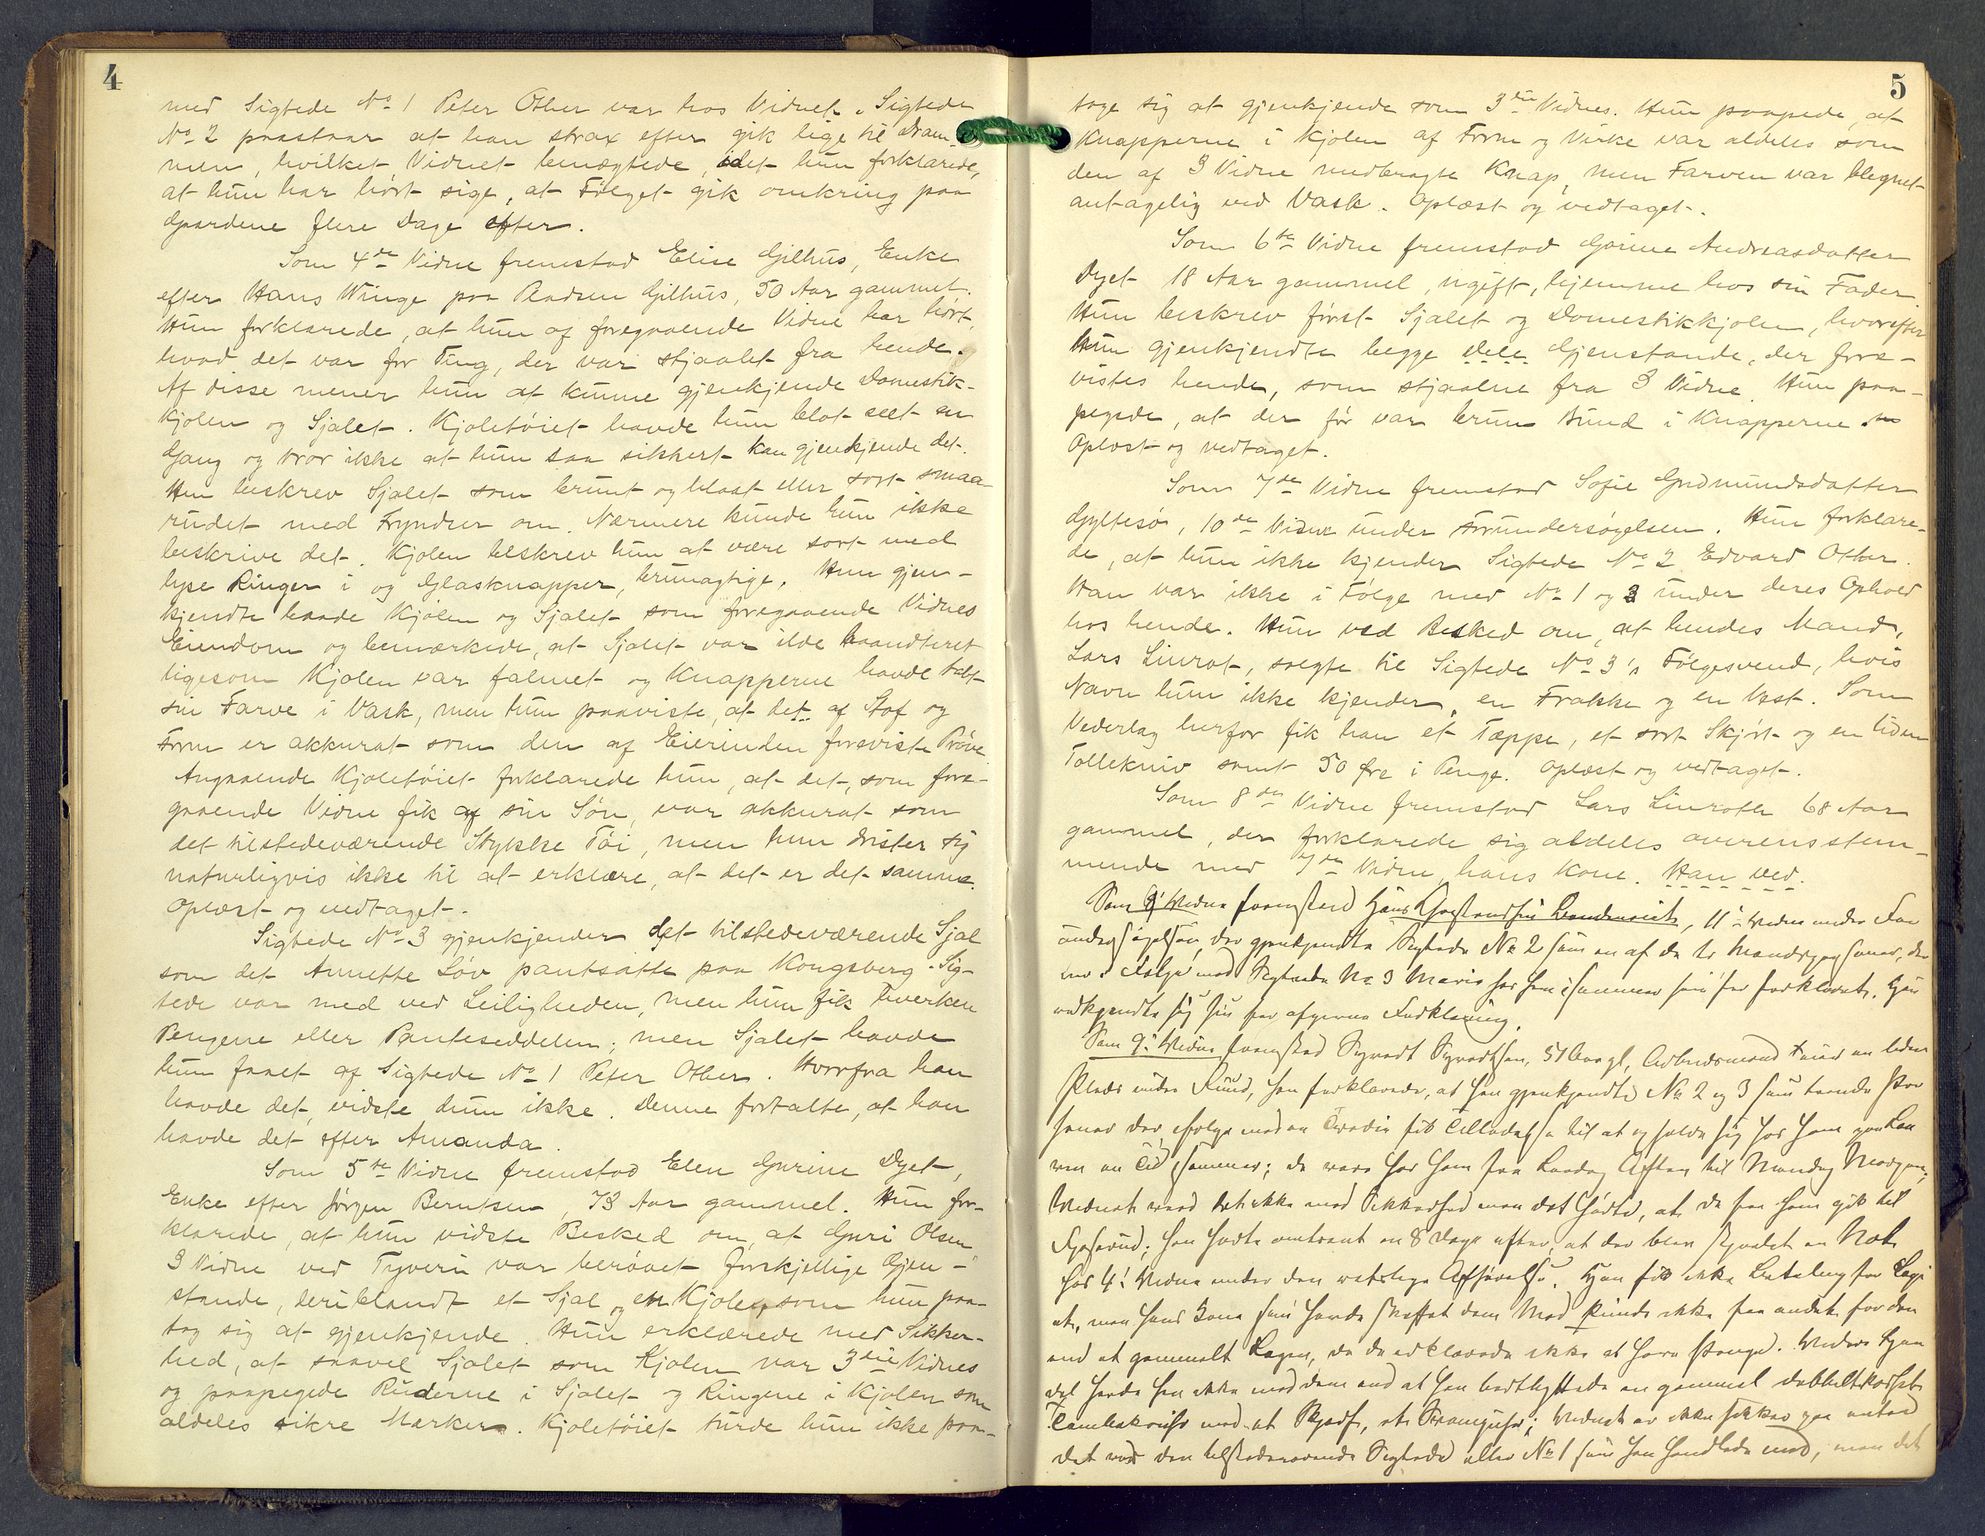 4
med Sigtede No 1 Peter Other var hos Vidnet. Sigtede
No 2 paastaar at han strax efter gik lige til Dram-
men, hvilket Vidnet benægtede, idet hun forklarede,
at hun har hørt sige, at Følget gik omkring paa
Gaardene flere Dage efter.
Som 4de Vidne fremstod Elise Gilhus, Enke
efter Hans Winge paa Gilhus, 50 Aar gammel.
Hun forklarede, at hun af foregaaende Vidne har hørt,
hvad det var for Ting, der var stjaalet fra hende.
Af disse mener hun at kunne gjenkjende Domestik-
kjolen og Sjalet. Kjoletøiet havde hun blot seet en
Gang og tror ikke at hun saa sikkert kan gjenkjende det.
Hun beskrev Sjalet som brunt og blaat eller sort smaa
rudet med Fryndser om. Nærmere kunde hun ikke
beskrive det. Kjolen beskrev hun at være sort med
lyse Ringer i og Glasknapper, brunagtige. Hun gjen-
kjendte baade Kjolen og Sjalet som foregaaende Vidnes
Eiendom og bemærkede, at Sjalet var ilde haandteret
ligesom Kjolen var falmet og Knapperne havde tabt
sin Farve i Vask, men hun paaviste, at det af Stof og
Form er akkurat som den af Eierinden foreviste Prøve.
Angaaende Kjoletøiet forklarede hun, at det, som fore-
gaaende Vidne fik af sin Søn, var akkurat som
det tilstedeværende Stykke Tøi, men hun drister sig
naturligvis ikke til at erklære, at det er det samme.
Oplæst og vedtaget.
Sigtede No 3 gjenkjender det tilstedeværende Sjal
som det Annette Løv pantsatte paa Kongsberg. Sig-
tede var med ved Leiligheden, men hun fik hverken
Pengene eller Panteseddelen; men Sjalet havde
hun faaet af Sigtede No 1 Peter Other. Hvorfra han
havde det, vidste hun ikke. Denne fortalte, at han
havde det efter Amanda.
Som 5te Vidne fremstod Elen Gurine Dyet,
Enke efter Jørgen Berntsen, 73 Aar gammel. Hun for-
klarede, at hun vidste Besked om, at Guri Olsen,
3 Vidne ved Tyveri var berøvet forskjellige Gjen-
stande, deriblandt et Sjal og en Kjole, som hun paa-
tog sig at gjenkjende. Hun erklærede med Sikker-
hed, at saavel Sjalet som Kjolen var 3die Vidnes
og paapegede Ruderne i Sjalet og Ringene i Kjolen som
aldeles sikre Mærker. Kjoletøiet turde hun ikke paa-
5
tage sig at gjenkjende som 3die Vidnes. Hun paapede, at
Knapperne i Kjolen af Form og Virke var aldeles som
den af 3 Vidne medbragte Knap, men Farven var blegnet
antagelig ved Vask. Oplæst og vedtaget.
Som 6te Vidne fremstod Gorine Andreasdatter
Dyet 18 Aar gammel, ugift, hjemme hos sin Fader.
Hun beskrev først Sjalet og Domestikkjolen, hvorefter
hun gjenkjendte begge dele Gjenstande, der fore-
vistes hende, som stjaalne fra 3 Vidne. Hun paa-
pegede, at der før var brun Bund i Knapperne.
Oplæst og vedtaget.
Som 7de Vidne fremstod Sofie Gudmundsdatter
Gyltesø, 10de Vidne under Forundersøgelsen. Hun forklare-
de, at hun ikke kjender Sigtede No 2 Edvard Otter.
Han var ikke i Følge med No 1 og 3 under deres Ophold
hos hende. Hun ved Besked om, at hendes Mand,
Lars Linrot, solgte til Sigtede No 3's Følgesvend, hvis
Navn hun ikke kjender, en Frakke og en Vest. Som
Vederlag herfor fik han et Tæppe, et sort Skjørt og en liden
Tollekniv samt 50 Øre i Penge. Oplæst og vedtaget.
Som 8de Vidne fremstod Lars Linroth 68 Aar
gammel, der forklarede sig aldeles overensstem-
mende med 7de Vidne, hans Kone. Han ved.
Som 9' Vidne fremstod Hans 11' Vidne under For
undersøgelsen, der gjenkjendte Sigtede No 2 som en af de to Mandspersoner, der
var i Følge med Sigtede No 3 Marie hos ham i Sommer som før forklaret. Han
vedkjendte sig sin før afgivne Forklaring.
Som 9' Vidne fremstod Syvert Syvertsen, 51 Aar gl, Arbeidsmand paa en liden
Plads under Ruud, han forklarede, at han gjenkjendte No 2 og 3 som tvende Per
soner der i Følge med en Tredie fik Tilladelse til at opholde sig hos ham
en Tid i Sommer; de vare hos ham fra Lørdag Aften til Mandag Morgen;
Vidnet veed det ikke med Sikkerhed men det hedte, at de fra ham gik til
han hørte omtrent en 8 Dage efter, at der blev stjaalet en Not
hos 4' Vidne under den retslige Afhørelse. Han fik ikke Betaling for Logi
et, men hans Kone som havde skaffet dem Mad kunde ikke faa andet for den
end et gammelt Lagen, da de erklærede ikke at have Penge. Videre Han
del havde han ikke med dem end at han bortbyttede en gammel dobbeltkapslet
med et Skjerf, vidnet er ikke sikker paa enten
det var den tilstedeværende Sigtede eller No 1 som han handlede med, men det